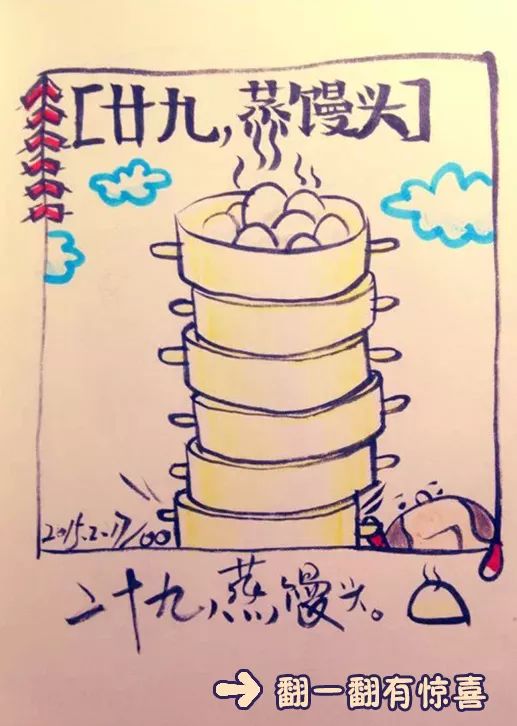 [廿九,蒸馒头]
2015.2.17/00
二十九,蒸馒头。
翻一翻有惊喜